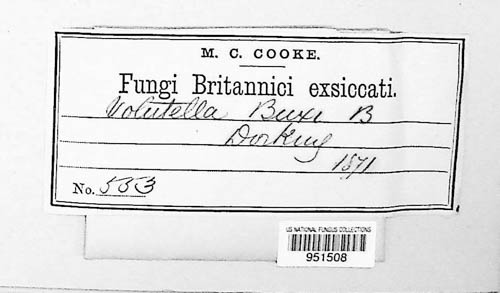 M. C. COOKE.
Fungi Britannici exsiccati.
Volutella Buxi B
Dorking
1871
No. 553
US NATIONAL FUNGUS COLLECTIONS
951508